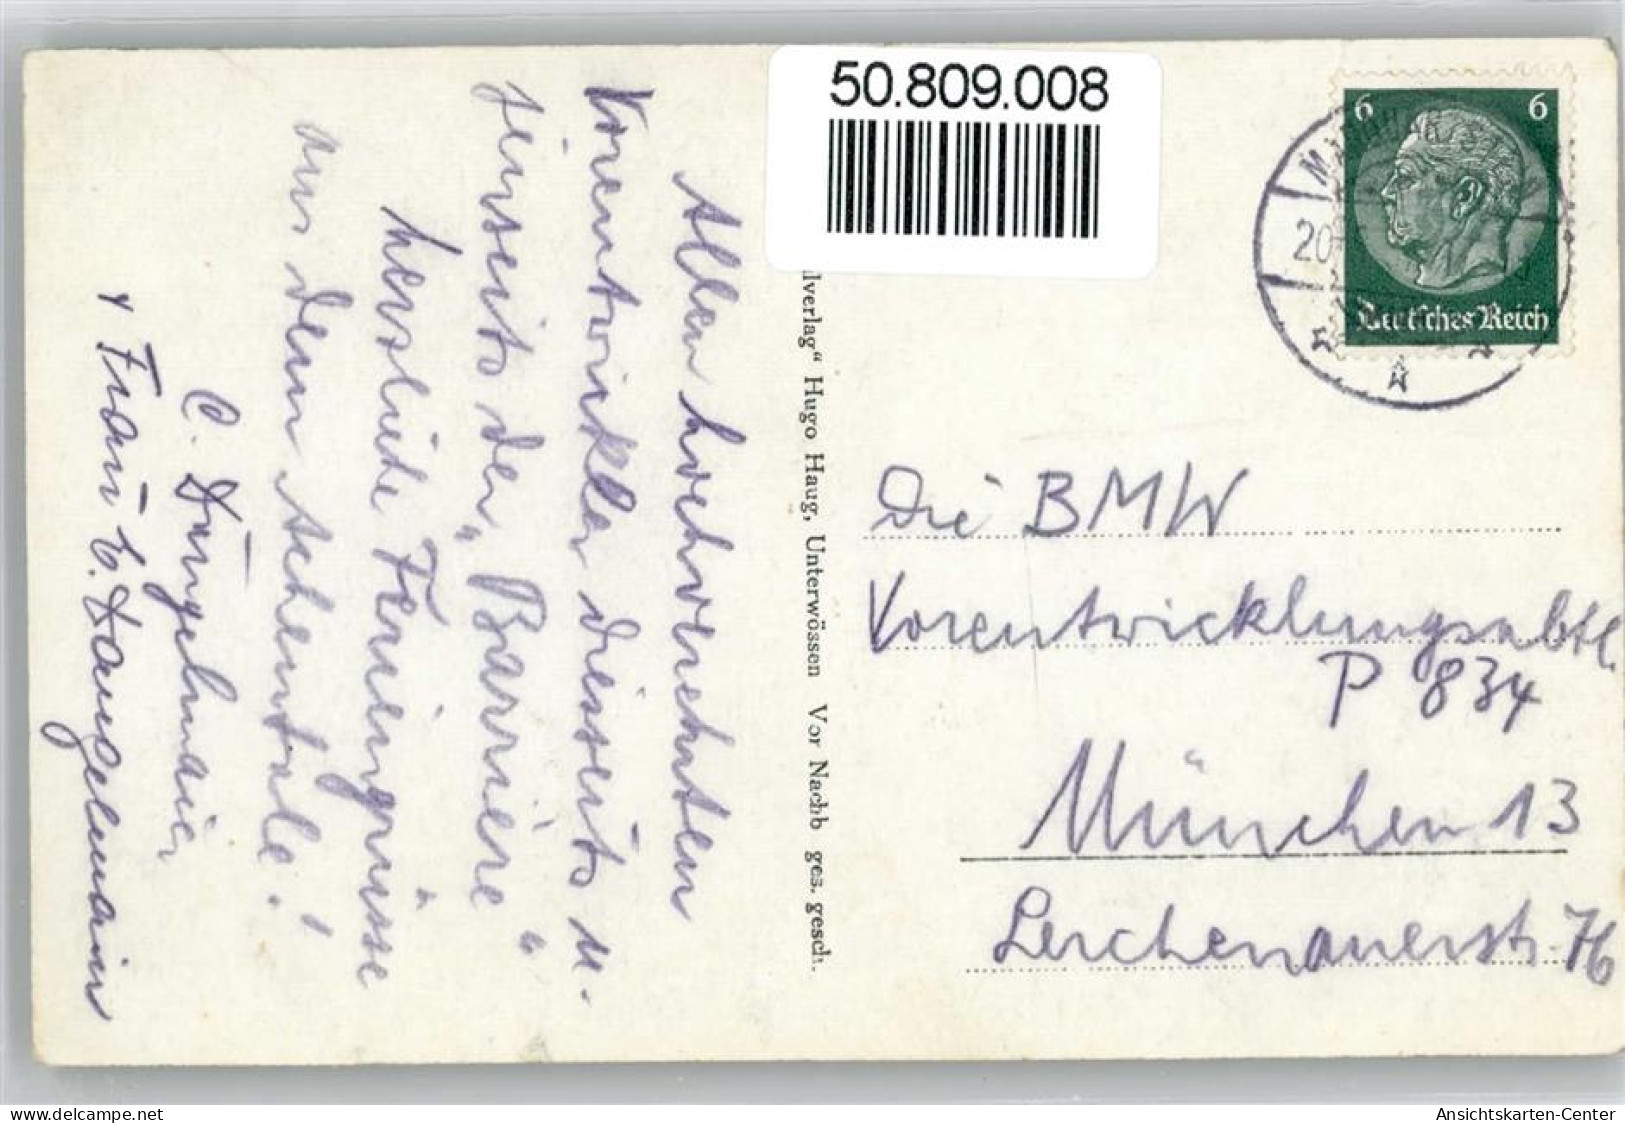 50.809.008
6 6
Deutsches Reich
20
Allen hochverehrten
Vorentwickler diesseits u.
jenseits der „Barriere“
herzliche Feriengrüsse
aus dem Achentale!
C. Düngelmaier
+ Frau
alverlag“ Hugo Haug, Unterwössen Vor Nachb ges. gesch.
Die BMW
Vorentwicklungsabtl.
P 834
München 13
Lerchenauerstr. 76
www.delcampe.net
Ansichtskarten-Center